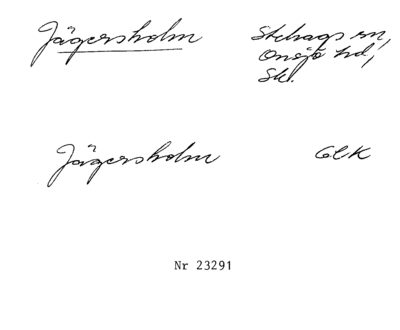 Jägersholm
Stehags sn,
Onsjö hd,
Sk.
Jägersholm
GEK
Nr 23291